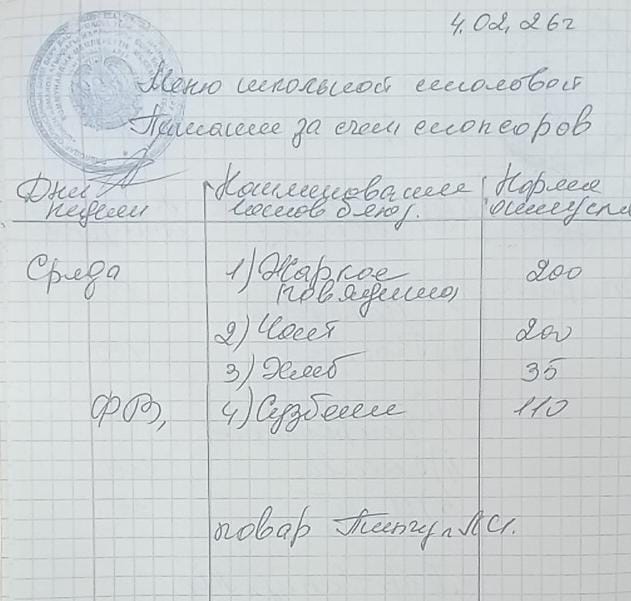 4.02.26г
Меню школьной столовой
Питание за счет спонсоров
Дни недели
Наименование блюд.
Норма отпуска
Среда
1) Жаркое говядина 200
2) Чай 200
3) Хлеб 35
ФВ, 4) Сузбеше 110
повар